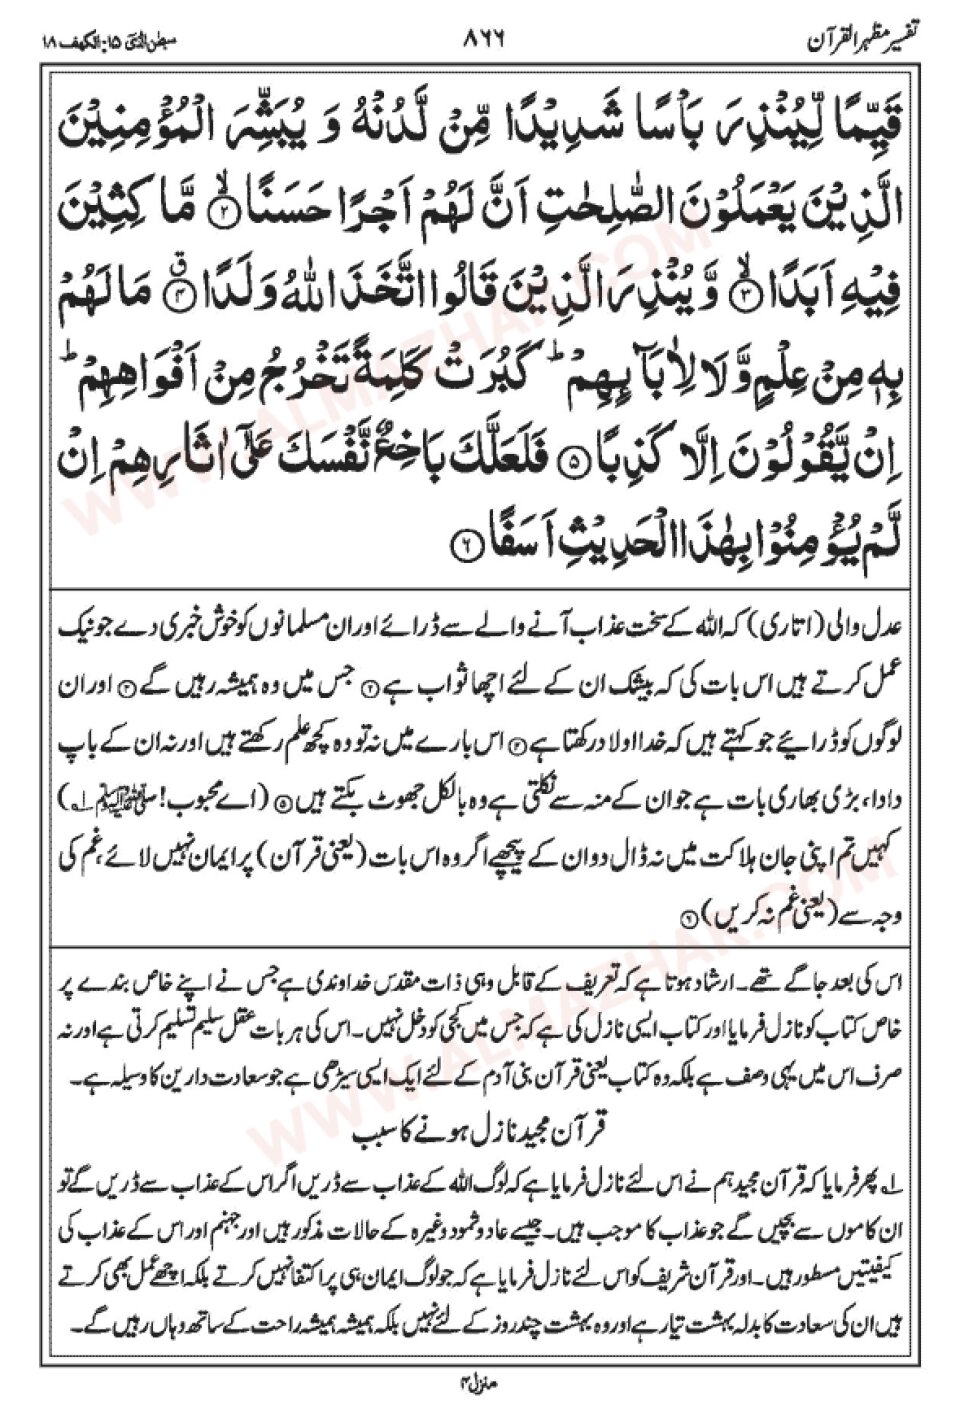 تفسیر مظہر القرآن
۸۶۶
سبحٰن الذی ۱۵: الکہف ۱۸
قَیِّمًا لِّیُنْذِرَ بَاْسًا شَدِیْدًا مِّنْ لَّدُنْهُ وَ یُبَشِّرَ الْمُؤْمِنِیْنَ
الَّذِیْنَ یَعْمَلُوْنَ الصّٰلِحٰتِ اَنَّ لَهُمْ اَجْرًا حَسَنًا ۙ﴿۲﴾ مَّا كِثِیْنَ
فِیْهِ اَبَدًا ۙ﴿۳﴾ وَّ یُنْذِرَ الَّذِیْنَ قَالُوا اتَّخَذَ اللّٰهُ وَلَدًا ﴿۴﴾ۗ مَا لَهُمْ
بِهٖ مِنْ عِلْمٍ وَّ لَا لِاٰبَآىِٕهِمْ ؕ كَبُرَتْ كَلِمَةً تَخْرُجُ مِنْ اَفْوَاهِهِمْ ؕ
اِنْ یَّقُوْلُوْنَ اِلَّا كَذِبًا ﴿۵﴾ فَلَعَلَّكَ بَاخِعٌ نَّفْسَكَ عَلٰۤی اٰثَارِهِمْ اِنْ
لَّمْ یُؤْمِنُوْا بِهٰذَا الْحَدِیْثِ اَسَفًا ﴿۶﴾
عدل والی (اتاری) کہ اللہ کے سخت عذاب آنے والے سے ڈرائے اور ان مسلمانوں کو خوش خبری دے جو نیک
عمل کرتے ہیں اس بات کی کہ بیشک ان کے لئے اچھا ثواب ہے ﴿۲﴾ جس میں وہ ہمیشہ رہیں گے ﴿۳﴾ اور ان
لوگوں کو ڈرائیے جو کہتے ہیں کہ خدا اولاد رکھتا ہے ﴿۴﴾ اس بارے میں نہ تو وہ کچھ علم رکھتے ہیں اور نہ ان کے باپ
دادا، بڑی بھاری بات ہے جو ان کے منہ سے نکلتی ہے وہ بالکل جھوٹ بکتے ہیں ﴿۵﴾ (اے محبوب! صلی اللہ علیہ وسلم ۱؎)
کہیں تم اپنی جان ہلاکت میں نہ ڈال دو ان کے پیچھے اگر وہ اس بات (یعنی قرآن) پر ایمان نہیں لائے، غم کی
وجہ سے (یعنی غم نہ کریں) ﴿۶﴾
اس کی بعد جاگے تھے۔ ارشاد ہوتا ہے کہ تعریف کے قابل وہی ذات مقدس خداوندی ہے جس نے اپنے خاص بندے پر
خاص کتاب کو نازل فرمایا اور کتاب ایسی نازل کی ہے کہ جس میں کجی کو دخل نہیں۔ اس کی ہر بات عقل سلیم تسلیم کرتی ہے اور نہ
صرف اس میں یہی وصف ہے بلکہ وہ کتاب یعنی قرآن بنی آدم کے لئے ایک ایسی سیڑھی ہے جو سعادت دارین کا وسیلہ ہے۔
قرآن مجید نازل ہونے کا سبب
۱؎ پھر فرمایا کہ قرآن مجید ہم نے اس لئے نازل فرمایا ہے کہ لوگ اللہ کے عذاب سے ڈریں اگر اس کے عذاب سے ڈریں گے تو
ان کاموں سے بچیں گے جو عذاب کا موجب ہیں۔ جیسے عاد و ثمود وغیرہ کے حالات مذکور ہیں اور جہنم اور اس کے عذاب کی
کیفیتیں مسطور ہیں۔ اور قرآن شریف کو اس لئے نازل فرمایا ہے کہ جو لوگ ایمان ہی پر اکتفا نہیں کرتے بلکہ اچھے عمل بھی کرتے
ہیں ان کی سعادت کا بدلہ بہشت تیار ہے اور وہ بہشت چند روز کے لئے نہیں بلکہ ہمیشہ ہمیشہ راحت کے ساتھ وہاں رہیں گے۔
منزل ۴
WWW.ALMAZHAR.COM
WWW.ALMAZHAR.COM